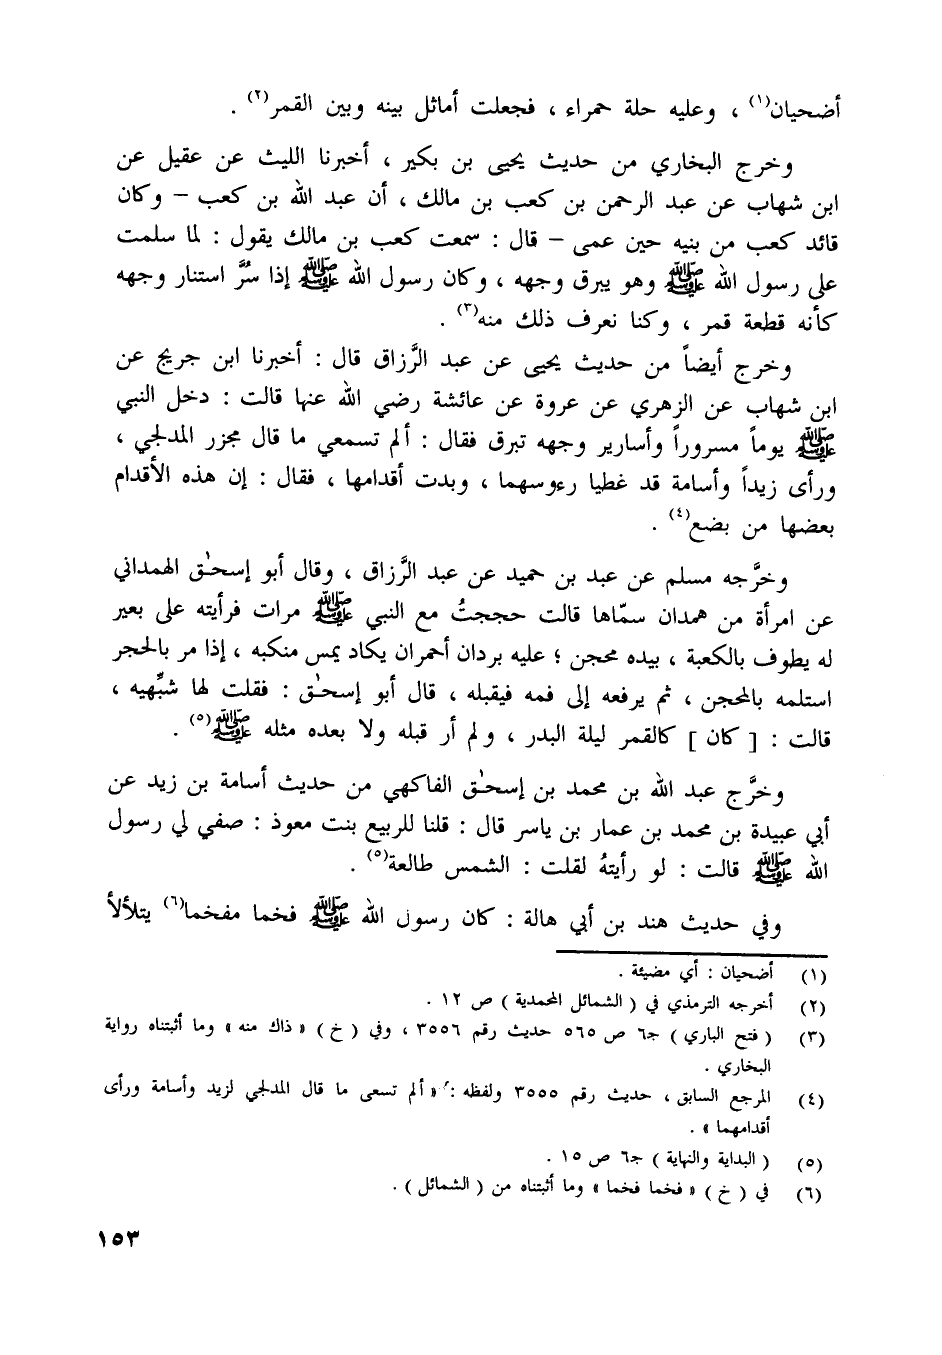 أضحيان(١) ، وعليه حلة حمراء ، فجعلت أماثل بينه وبين القمر(٢) .
وخرج البخاري من حديث يحيى بن بكير ، أخبرنا الليث عن عقيل عن
ابن شهاب عن عبد الرحمن بن كعب بن مالك ، أن عبد الله بن كعب – وكان
قائد كعب من بنيه حين عمى – قال : سمعت كعب بن مالك يقول : لما سلمت
على رسول الله ﷺ وهو يبرق وجهه ، وكان رسول الله ﷺ إذا سُرَّ استنار وجهه
كأنه قطعة قمر ، وكنا نعرف ذلك منه(٣) .
وخرج أيضاً من حديث يحيى عن عبد الرَّزاق قال : أخبرنا ابن جريج عن
ابن شهاب عن الزهري عن عروة عن عائشة رضي الله عنها قالت : دخل النبي
ﷺ يوماً مسروراً وأسارير وجهه تبرق فقال : ألم تسمعي ما قال مجزر المدلجي ،
ورأى زيداً وأسامة قد غطيا رءوسهما ، وبدت أقدامها ، فقال : إن هذه الأقدام
بعضها من بضع(٤) .
وخرَّجه مسلم عن عبد بن حميد عن عبد الرَّزاق ، وقال أبو إسحٰق الهمداني
عن امرأة من همدان سمّاها قالت حججتُ مع النبي ﷺ مرات فرأيته على بعير
له يطوف بالكعبة ، بيده محجن ؛ عليه بردان أحمران يكاد يمس منكبه ، إذا مر بالحجر
استلمه بالمحجن ، ثم يرفعه إلى فمه فيقبله ، قال أبو إسحٰق : فقلت لها شبِّهيه ،
قالت : [ كان ] كالقمر ليلة البدر ، ولم أر قبله ولا بعده مثله ﷺ(٥) .
وخرَّج عبد الله بن محمد بن إسحٰق الفاكهي من حديث أسامة بن زيد عن
أبي عبيدة بن محمد بن عمار بن ياسر قال : قلنا للربيع بنت معوذ : صفي لي رسول
الله ﷺ قالت : لو رأيتهُ لقلت : الشمس طالعة(٥) .
وفي حديث هند بن أبي هالة : كان رسول الله ﷺ فخما مفخما(٦) يتلألأ
(١) أضحيان : أي مضيئة .
(٢) أخرجه الترمذي في ( الشمائل المحمدية ) ص ١٢ .
(٣) ( فتح الباري ) جـ٦ ص ٥٦٥ حديث رقم ٣٥٥٦ ، وفي ( خ ) « ذاك منه » وما أثبتناه رواية
البخاري .
(٤) المرجع السابق ، حديث رقم ٣٥٥٥ ولفظه : « ألم تسعى ما قال المدلجي لزيد وأسامة ورأى
أقدامهما » .
(٥) ( البداية والنهاية ) جـ٦ ص ١٥ .
(٦) في ( خ ) « فخما فخما » وما أثبتناه من ( الشمائل ) .
١٥٣